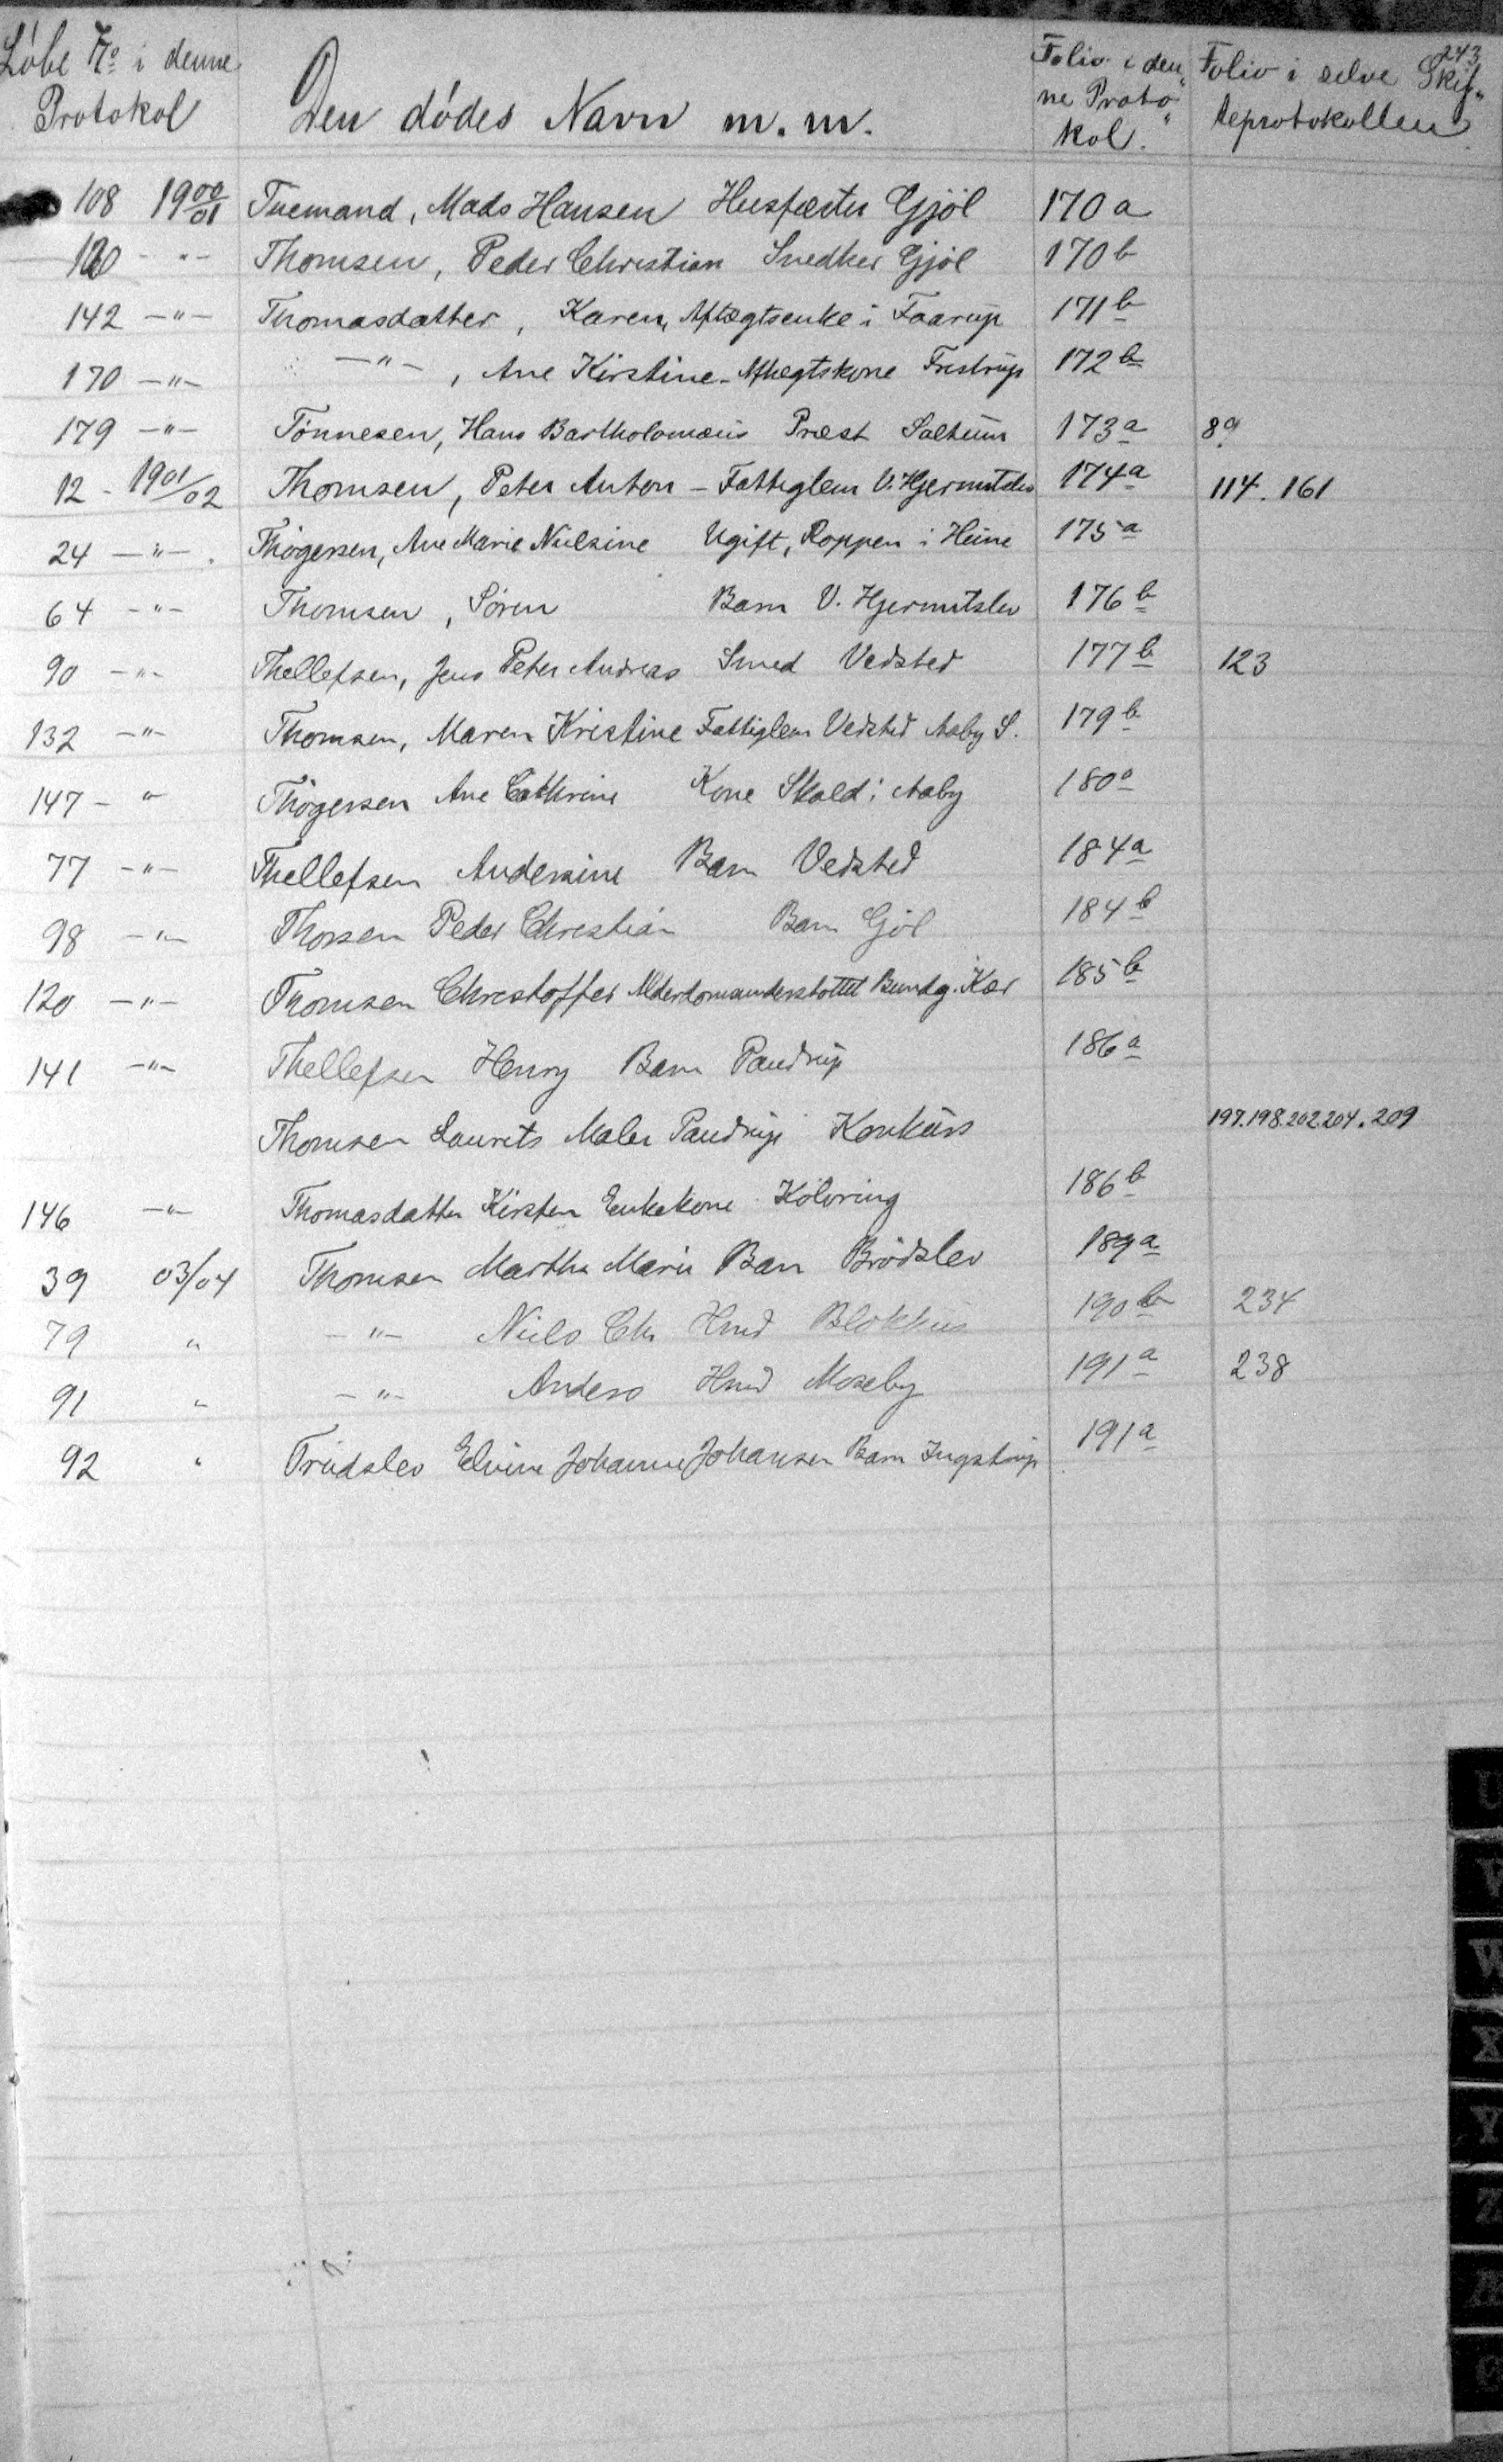 243
Løbe No i denne Protokol | Den dødes Navn m.m. | Folio i denne Protokol. | Folio i selve Skifteprotokollen
108 1900/01 Tuemand, Mads Hansen Husfæster Gjöl 170 a
120 - " - Thomsen, Peder Christian Snedker Gjöl 170 b
142 - " - Thomasdatter, Karen, Aftægtsenke i Faarup 171 b
170 - " - - " - , Ane Kirstine - Aftægtskone Fristrup 172 b
179 - " - Tönnesen, Hans Bartholomæus Præst Saltum 173 a 89
12 - 1901/02 Thomsen, Peter Anton - Fattiglem V. Hjermitslev 174 a 114. 161
24 - " - Thögersen, Ane Marie Nielsine Ugift, i Hune 175 a
64 - " - Thomsen, Sören Barn V. Hjermitslev 176 b
90 - " - Thellefsen, Jens Peter Andreas Smed Vedsted 177 b 123
132 - " - Thomsen, Maren Kristine Fattiglem Vedsted Aaby S. 179 b
147 - " Thögersen Ane Cathrine Kone Skald i Aaby 180 a
77 - " - Thellefsen Andersine Barn Vedsted 184 a
98 - " - Thorsen Peder Christian Barn Gjöl 184 b
120 - " - Thomsen Christoffer Alderdomsunderstöttet Bundg. Kær 185 b
141 - " - Thellefsen Henry Barn Pandrup 186 a
Thomsen Laurits Maler Pandrup Konkurs 197.198.202.204.209
146 - " - Thomasdatter Kirsten Enkekone Kölvring 186 b
39 03/04 Thomsen Martha Marie Barn Brödslev 189 a
79 " - " - Niels Chr Hmd Blokhus 190 b 234
91 " - " - Anders Hmd Moseby 191 a 238
92 " Trudslev Elvine Johanne Johansen Barn Ingstrup 191 a
U
V
W
X
Y
Z
Ø